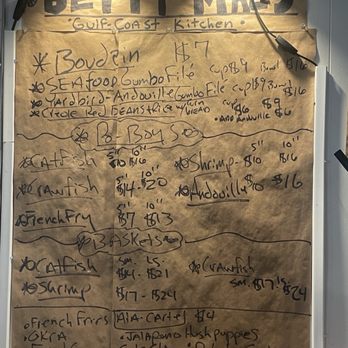 BETTY MAE'S
Gulf-Coast Kitchen
Boudin $7
SEAfood Gumbo File cup $9 Bowl $16
Yardbird-Andouille Gumbo File cup $9 Bowl $16
Creole Red Beans & Rice w/ Corn BREAD cup $6 $9
ADD Andouille $6
Po Boys
5" 10"
CAtfish $10 $16
5" 10"
Shrimp - $10 $16
5" 10"
Crawfish $14 - $20
Andouille $10 $16
5" 10"
French Fry $7 $13
BASKets
sm. LS.
CAtfish $14 - $21
Crawfish
sm. LS.
$17 $24
Shrimp $17 - $24
French Fries
AlA-CArte $4
OKrA
JAlApeno Hushpuppies